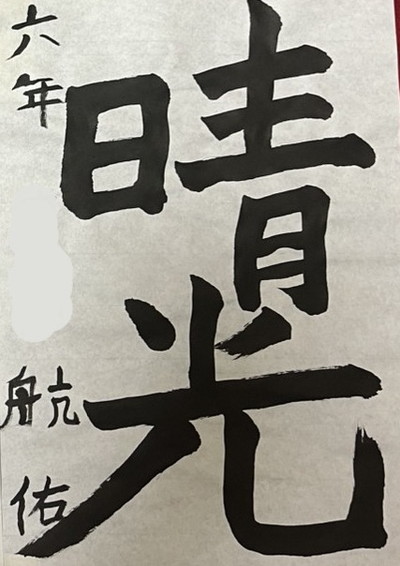 晴光
六年
航佑